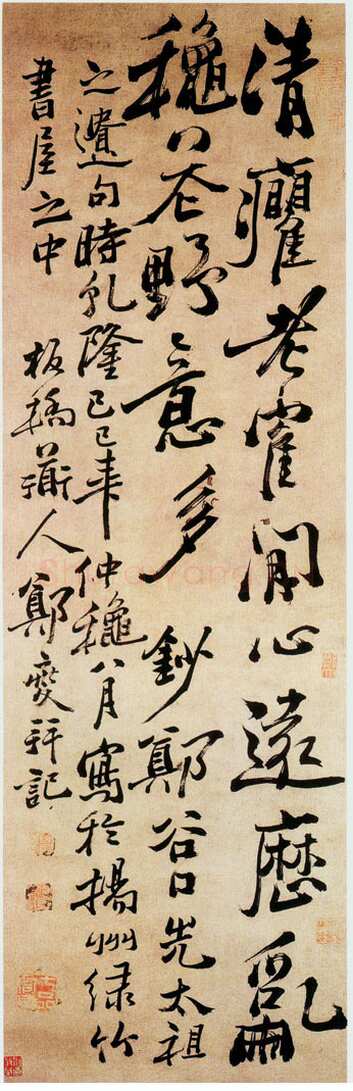 清癯老寉閒心遠歷亂
穐花野意多 鈔鄭谷口先太祖
之遺句時乾隆己巳年仲穐八月寫於揚州绿竹
書屋之中 板橋衜人鄭燮拜記